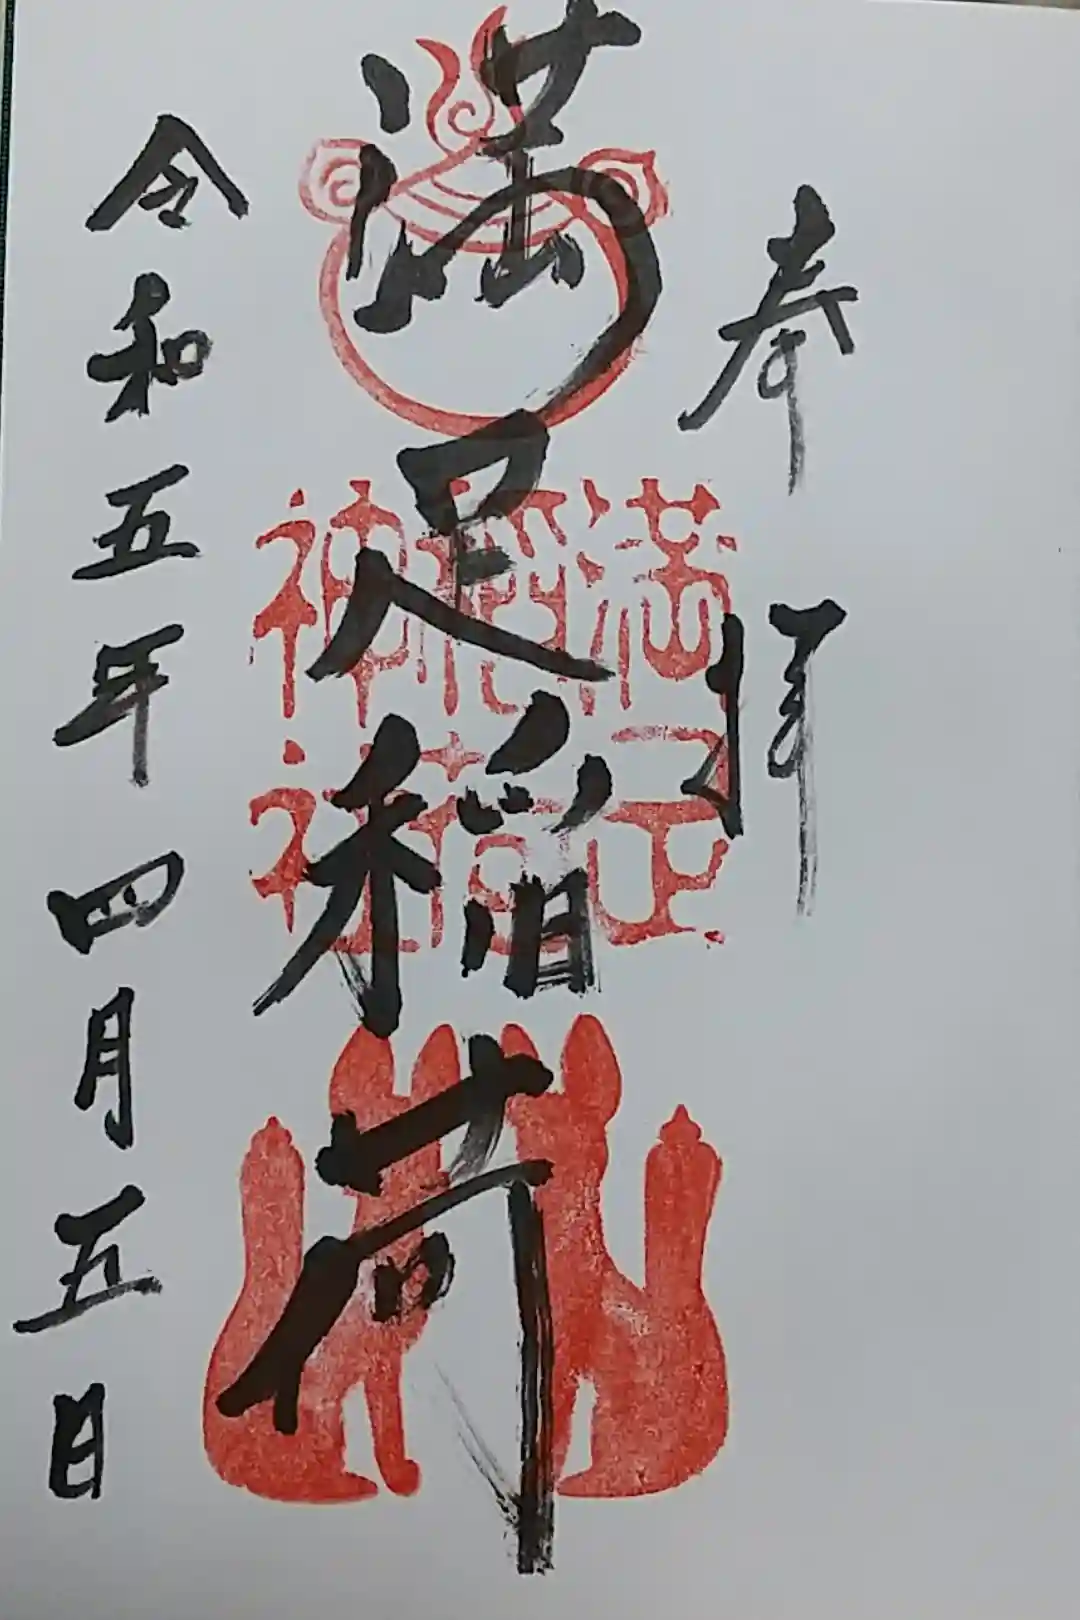 奉拝
満足稲荷
満足
稲荷
神社
令和五年四月五日